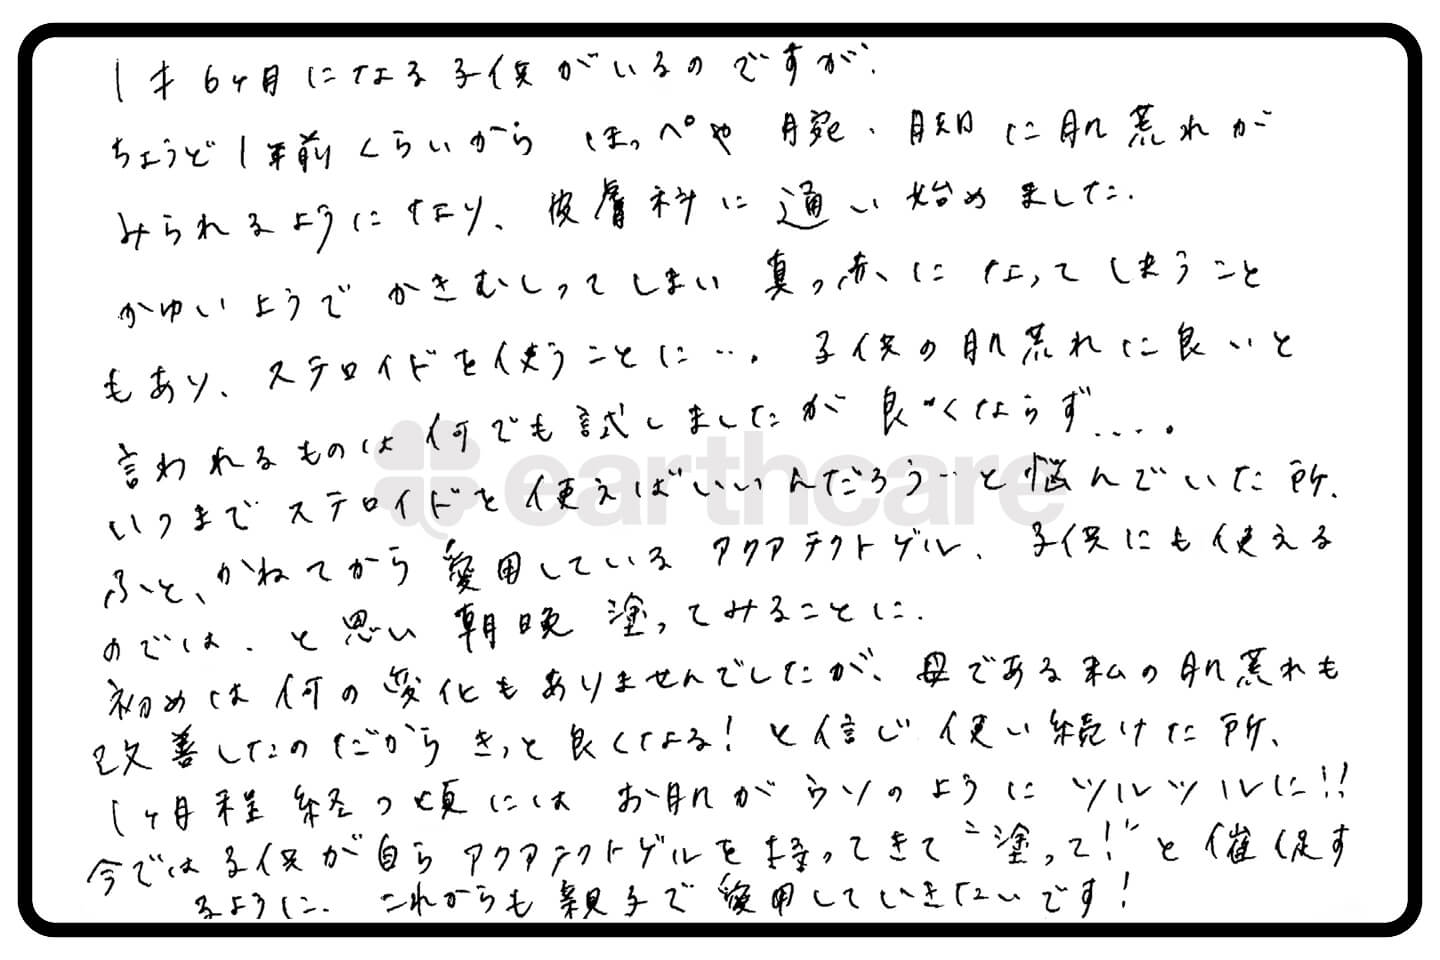 1才6ヶ月になる子供がいるのですが、
ちょうど1年前くらいから ほっぺや 腕、胸に肌荒れが
みられるようになり、皮膚科に通い始めました。
かゆいようで かきむしってしまい 真っ赤になってしまうこと
もあり、ステロイドを使うことに…。子供の肌荒れに良いと
言われるものは何でも試しましたが 良くならず....。
earthcare
いつまでステロイドを使えばいいんだろう…と悩んでいた所、
ふと、かねてから愛用しているアクアテクトゲル、子供にも使える
のでは、と思い 朝晩 塗ってみることに。
初めは何の変化もありませんでしたが、母である私の肌荒れも
改善したのだからきっと良くなる!と信じ 使い続けた所、
1ヶ月程経つ頃には お肌がウソのように ツルツルに!!
今では子供が自らアクアテクトゲルを持ってきて"塗って!"と催促す
るように。これからも親子で愛用していきたいです!